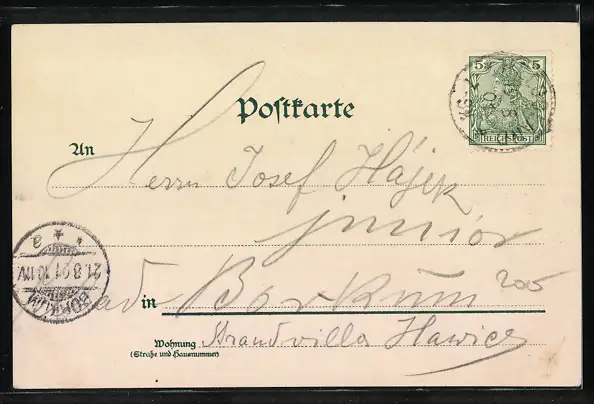 Postkarte
5 5
REICHSPOST
An Herrn Josef Hájek
junior
Bad in Borkum 205
Wohnung Strandvilla Hawich
(Straße und Hausnummer)
21.8.01
BORKUM